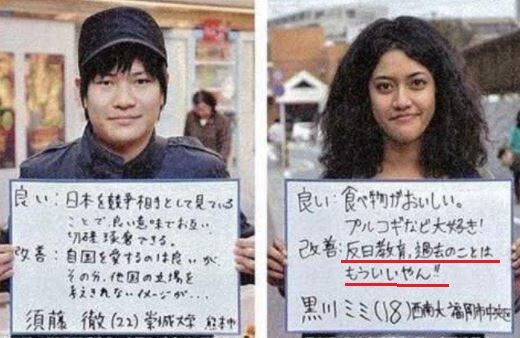 良い：日本を競争相手として見ている
ことで、良い意味でお互い
切磋琢磨できる。
改善：自国を愛するのは良いが、
その分、他国の立場を
考えきれないイメージが…
須藤 徹(22) 崇城大学 熊本市
良い：食べ物がおいしい。
プルコギなど大好き！
改善：反日教育、過去のことは
もういいやん!!
黒川ミミ(18) 西南大 福岡市中央区